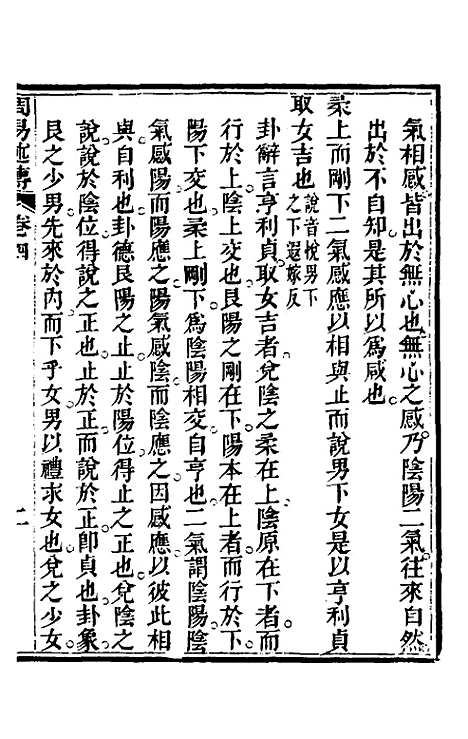 氣相感皆出於無心也無心之感乃陰陽二氣往來自然
出於不自知是其所以爲感也
柔上而剛下二氣感應以相與止而說男下女是以亨利貞
取女吉也說音悅男下之下遐嫁反
卦辭言亨利貞取女吉者兌陰之柔在上陰原在下者而
行於上陰上交也艮陽之剛在下陽本在上者而行於下
陽下交也柔上剛下爲陰陽相交自亨也二氣謂陰陽陰
氣感陽而陽應之陽氣感陰而陰應之因感應以彼此相
與自利也卦德艮陽之止止於陽位得止之正也兌陰之
說說於陰位得說之正也止於正而說於正卽貞也卦象
艮之少男先來於內而下乎女男以禮求女也兌之少女
周易述傳 卷四 二